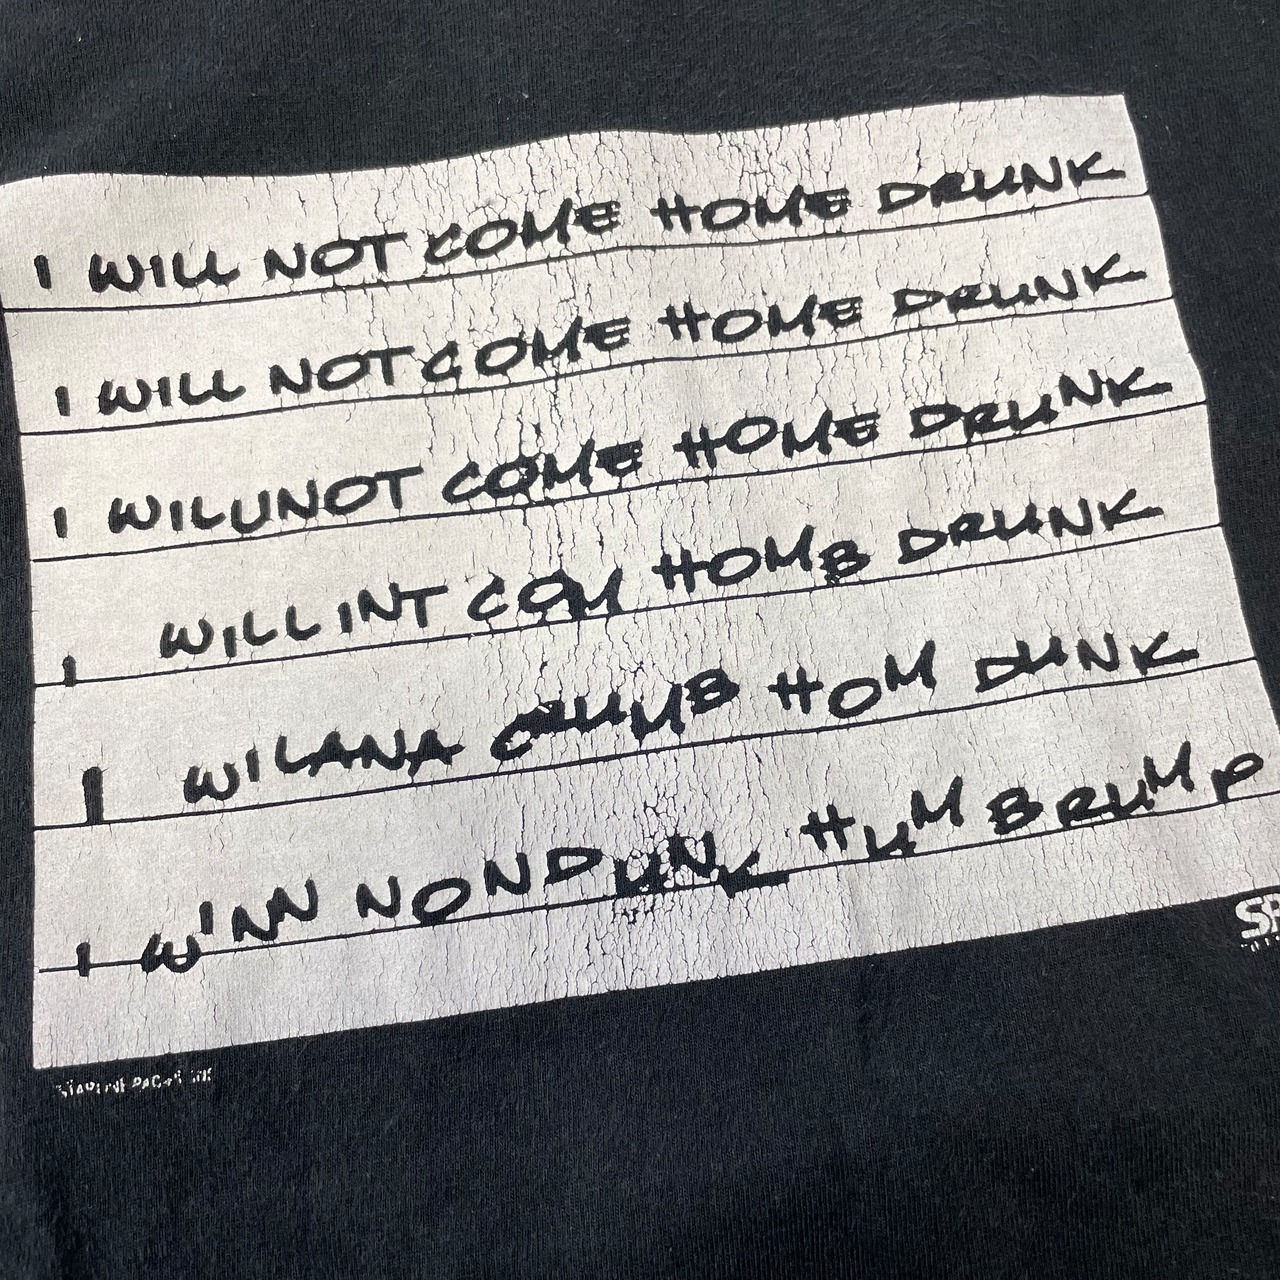 I WILL NOT COME HOME DRUNK
I WILL NOT COME HOME DRUNK
I WILUNOT COME HOME DRUNK
I WILLINT COM HOMB DRUNK
I WILANA CUUMB HOM DUNK
I WINN NONDUNK HUM BRUMP